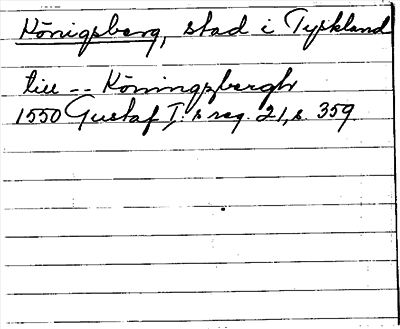 Königsberg, stad i Tyskland
till -- Köningzbergh
1550 Gustaf I:s reg. 21, s. 359.